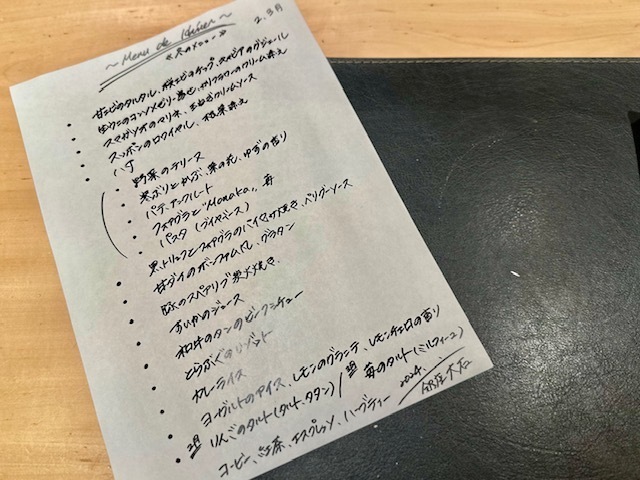 〜Menu de Hiver〜
2.3月
《冬のメニュー》
・甘エビのタルタル、桜エビのチップ、キャビアのグジェール
・生ウニのコンソメゼリー寄せ、カリフラワーのクリーム添え
・スマガツオのマリネ、玉ねぎクリームソース
・スッポンのロワイヤル、根菜添え
・八寸
・野菜のテリース
・寒ぶりとかぶ、菜の花、ゆずの香り
・パテ・アンクルート
・フォアグラと"Monaka"、苺
・パスタ(ブイヤベース)
・黒トリュフとフォアグラのパイ包み焼き、ペリグーソース
・甘ダイのボンファム風、グラタン
・豚のスペアリブ炭火焼き
・すいかのジュース
・和牛のタンのビーフシチュー
・とらふぐのリゾット
・カレーライス
・ヨーグルトのアイス、レモンのグラニテ、レモンチェロの香り
・りんごのタルト(タルトタタン)/ 苺のタルト(ミルフィーユ)
・コーヒー、紅茶、エスプレッソ、ハーブティー
2024.
銀座大石